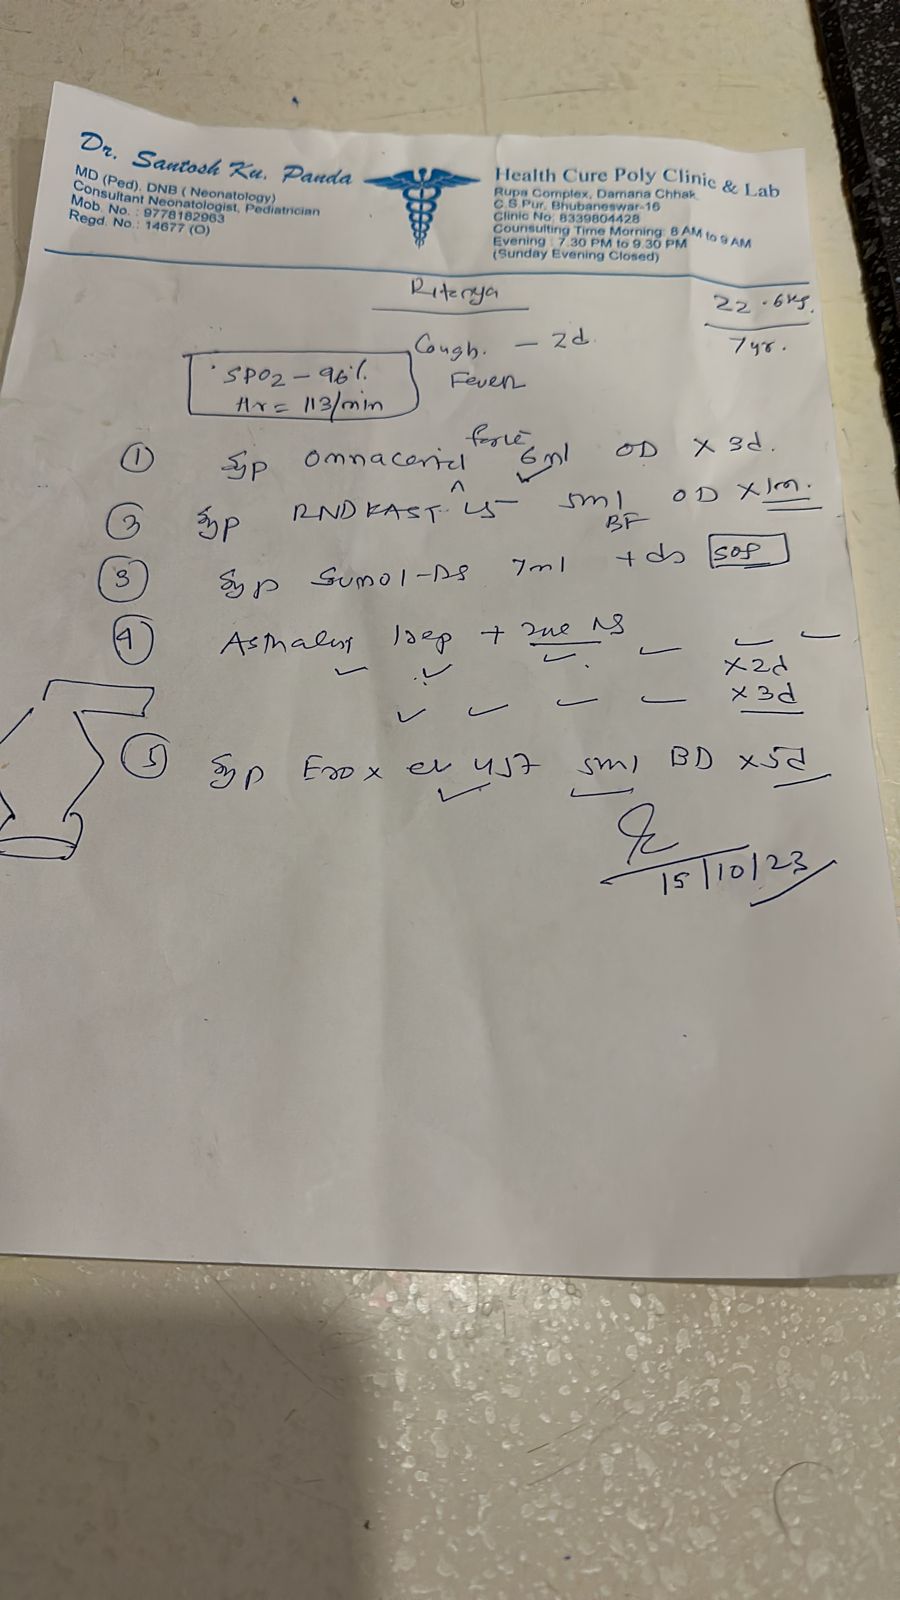 Dr. Santosh Ku. Panda
MD (Ped), DNB ( Neonatology)
Consultant Neonatologist, Pediatrician
Mob. No. : 9778182963
Regd. No.: 14677 (O)
Health Cure Poly Clinic & Lab
Rupa Complex, Damana Chhak
C.S.Pur, Bhubaneswar-16
Clinic No: 8339804428
Counsulting Time Morning: 8 AM to 9 AM
Evening : 7.30 PM to 9.30 PM
(Sunday Evening Closed)
22.6kg.
7yr.
Cough. - 2d
Fever
SPO2 - 96%
Hr = 113/min
① Syp forte 6ml OD x 3d.
Syp 5ml OD x 1m.
③ Syp 7ml SOS
④ + NS
x2d
x3d
⑤ Syp 457 5ml BD x5d
15/10/23